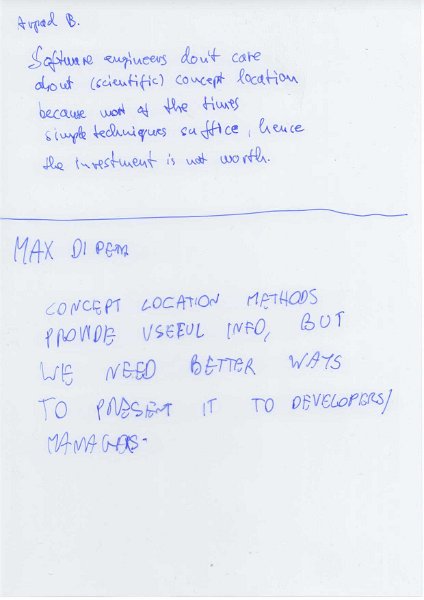 Arpad B.
Software engineers don't care
about (scientific) concept location
because most of the times
simple techniques suffice, hence
the investment is not worth.
MAX DI PENTA
CONCEPT LOCATION METHODS
PROVIDE USEFUL INFO, BUT
WE NEED BETTER WAYS
TO PRESENT IT TO DEVELOPERS/
MANAGERS.